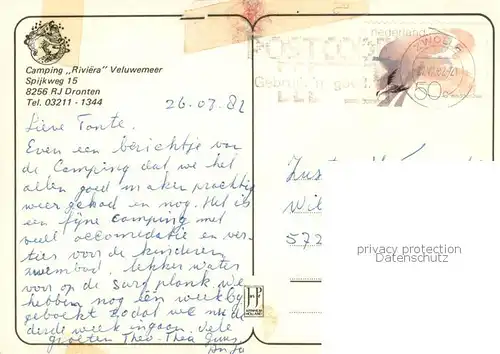 Camping „Riviëra" Veluwemeer
Spijkweg 15
8256 RJ Dronten
Tel. 03211 - 1344
nederland
POSTCODE
ZWOLLE
50
26.07.82
Lieve Tante.
Even een berichtje van
de Camping dat we het
allen goed maken prachtig
weer gehad en nog. Het is
een fijne camping met
veel accomedatie en ver-
tier voor de kinderen
zwembad, lekker water
voor op de surf plank. We
hebben nog één week bij
geboekt zodat we nu de
derde week ingaan. Vele
groeten Theo-Thea Guus
Zust
Wil
572
privacy protection
Datenschutz